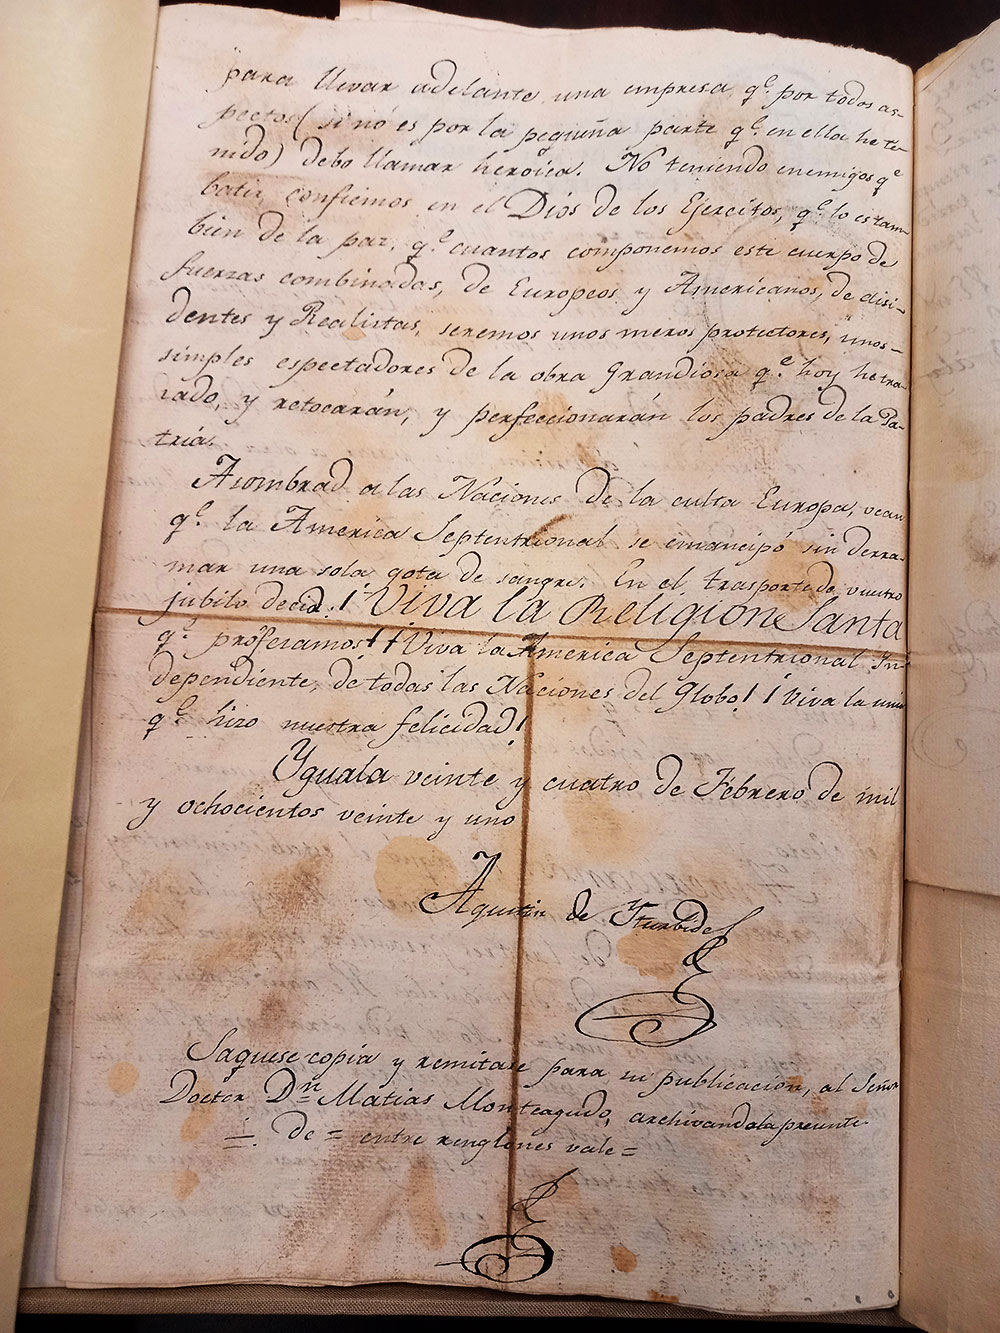 para llevar adelante una empresa q.e por todos as-
pectos (si nó es por la pequeña parte q.e en ella he te-
nido) debo llamar heróica. No teniendo enemigos q.e
batir, confiemos en el Dios de los Ejercitos, q.e lo es tam-
bien de la paz, q.e cuantos componemos este cuerpo de
fuerzas combinadas, de Europeos y Américanos, de disi-
dentes y Realistas, seremos unos meros protectores, unos
simples espectadores de la obra Grandiosa q.e hoy he tra-
zado, y retocarán, y perfeccionarán los padres de la Pa-
tria.
Asombrad a las Naciones de la culta Europa, vean
q.e la America Septentrional se emancipó sin derra-
mar una sola gota de sangre. En el trasporte de vuestro
jubilo decid. ¡Viva la Religion Santa
q.e proferamos! ¡Viva la America Septentrional In-
dependiente, de todas las Naciones del Globo! ¡Viva la union
q.e hizo nuestra felicidad!
Yguala veinte y cuatro de Febrero de mil
y ochocientos veinte y uno
Agustin de Yturbide
Saquese copia y remitase para su publicación, al Señor
Doctor D.n Matias Monteagudo, archivandola presente
de = entre renglones vale =